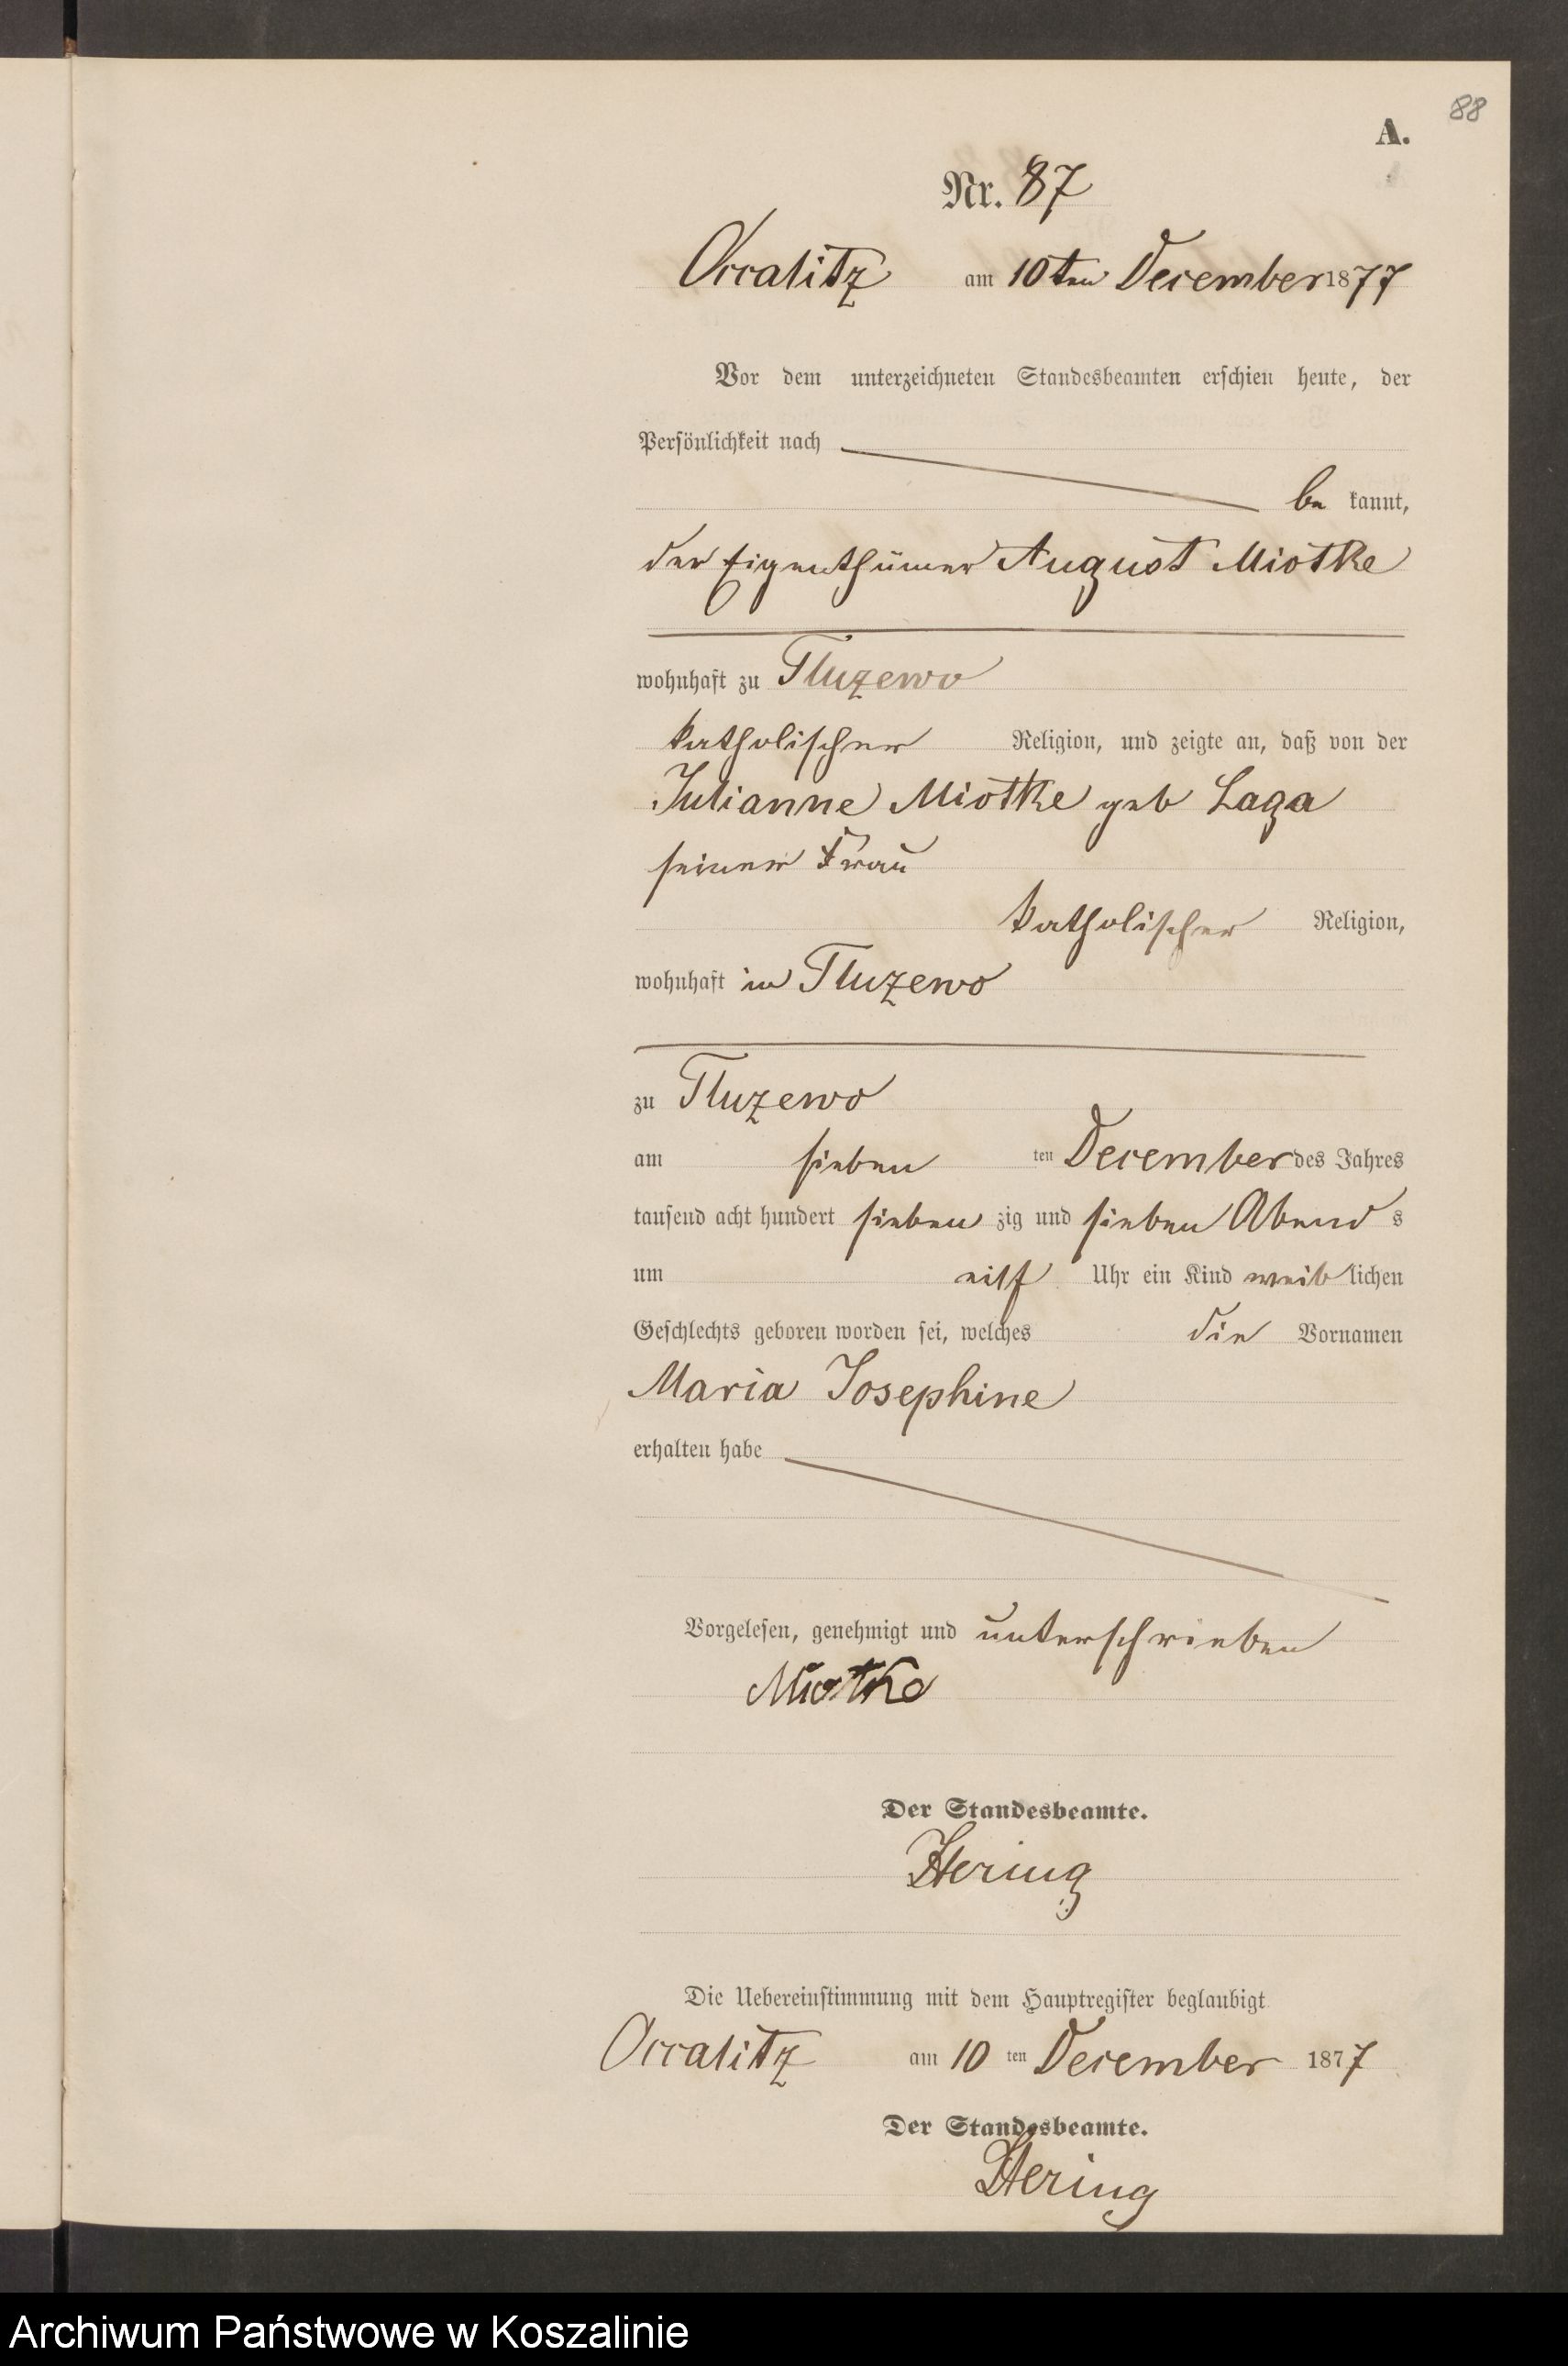 88
A.
Nr. 87
Occalitz am 10ten December 1877
Vor dem unterzeichneten Standesbeamten erschien heute, der
Persönlichkeit nach
be kannt,
der Eigenthümer August Miotke
wohnhaft zu Tluzewo
katholischer Religion, und zeigte an, daß von der
Julianne Miotke geb Laga
seiner Frau
katholischer Religion,
wohnhaft in Tluzewo
zu Tluzewo
am sieben ten December des Jahres
tausend acht hundert sieben zig und sieben Abend s
um eilf Uhr ein Kind weib lichen
Geschlechts geboren worden sei, welches die Vornamen
Maria Josephine
erhalten habe
Vorgelesen, genehmigt und unterschrieben
Miotke
Der Standesbeamte.
Hering
Die Uebereinstimmung mit dem Hauptregister beglaubigt
Occalitz am 10 ten December 1877
Der Standesbeamte.
Hering
Archiwum Państwowe w Koszalinie